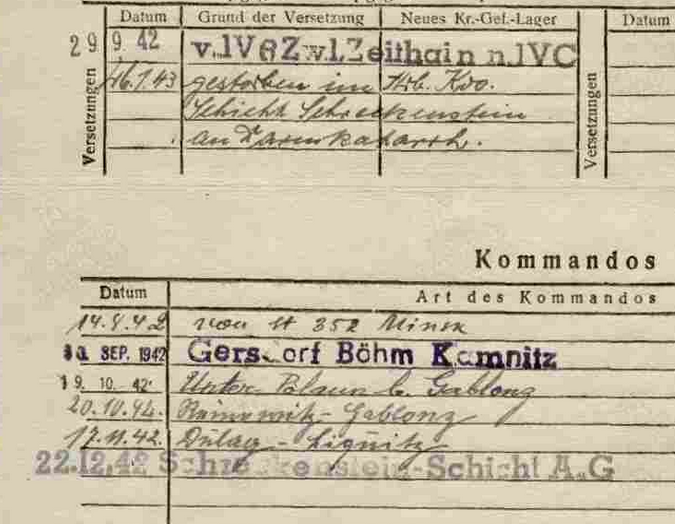 Datum Grund der Versetzung Neues Kr.-Gef.-Lager Datum
29 9. 42 v. IV B Zw.l. Zeithain n. IV C
Versetzungen
26.1.43 gestorben im Arb. Kdo.
Schicht Schreckenstein
an Darmkatarrh.
Versetzungen
Kommandos
Datum Art des Kommandos
14.8.42 von St 352 Minsk
SEP. 1942 Gersdorf Böhm Kamnitz
19. 10. 42. Unter-Polaun b. Gablonz
20.10.42. Gablonz
17.11.42. Dulag - Lignitz
22.12.42 Schreckenstein-Schicht A.G